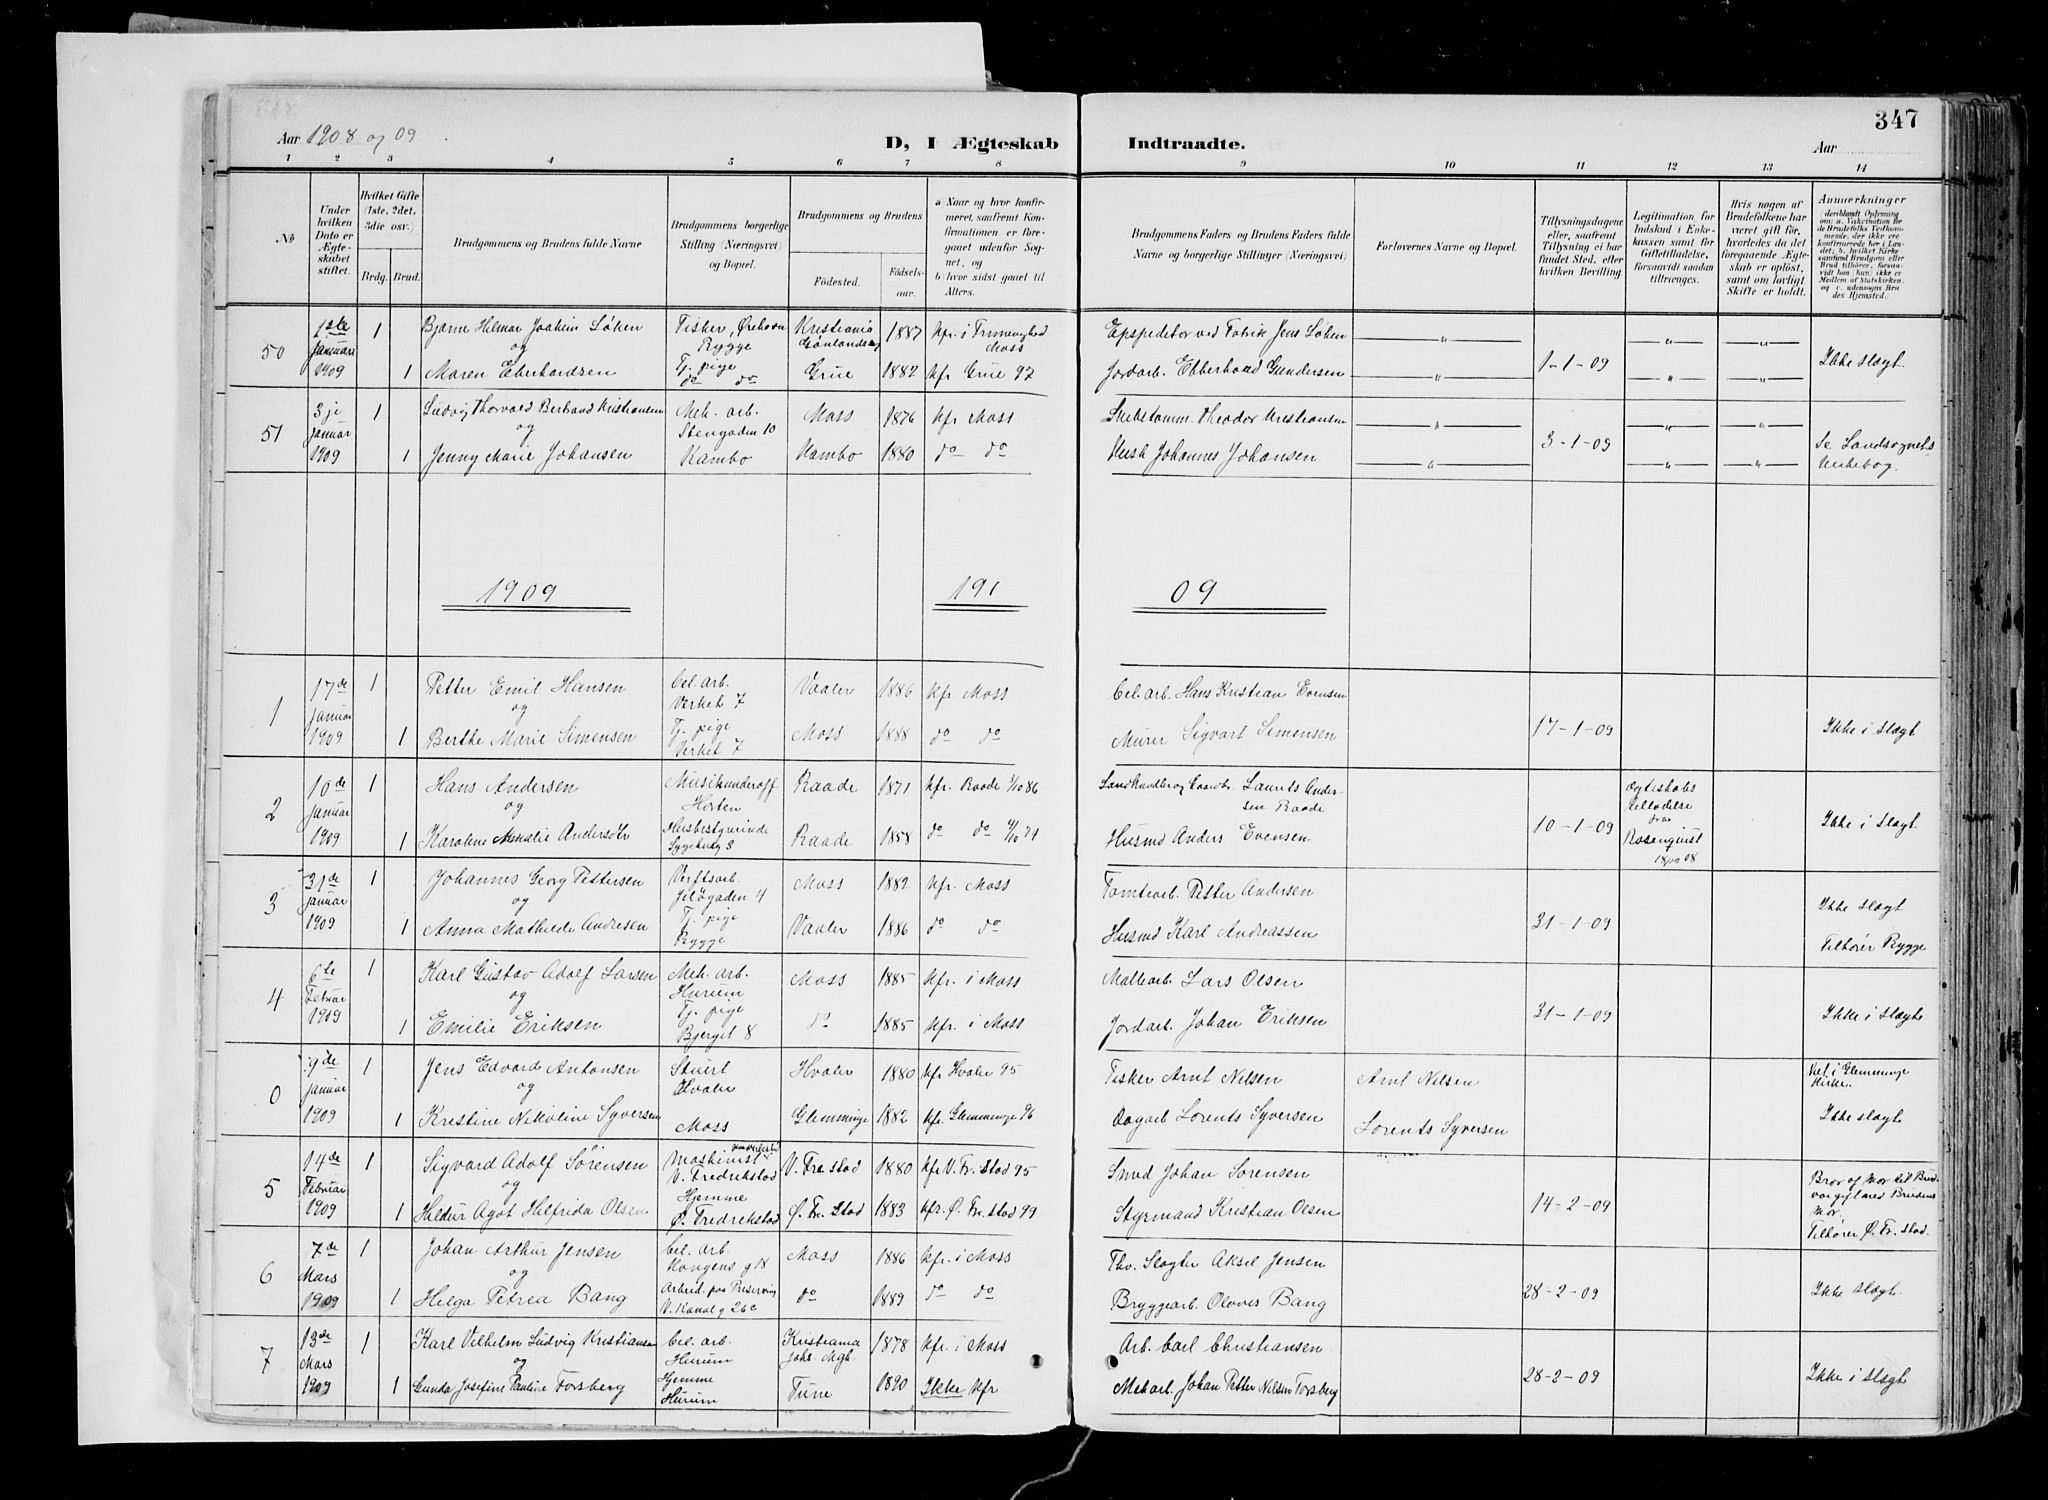 347
Aar 1908 og 09
D, I Ægteskab
Indtraadte.
Aar
1 2 3 4 5 6 7 8 9 10 11 12 13 14
No
Under hvilken Dato er Ægteskabet stiftet.
Hvilket Gifte (1ste, 2det, 3die osv.)
Brdg. Brud.
Brudgommens og Brudens fulde Navne
Brudgommens borgerlige Stilling (Næringsvei) og Bopæl.
Brudgommens og Brudens
Födested.
Födselsaar.
a Naar og hvor konfirmeret, saafremt Konfirmationen er foregaaet udenfor Sognet, og
b) hvor sidst gaaet til Alters.
Brudgommens Faders og Brudens Faders fulde Navne og borgerlige Stillinger (Næringsvei)
Forlovernes Navne og Bopæl.
Tillysningsdagene eller, saafremt Tillysning ei har fundet Sted, efter hvilken Bevilling.
Legitimation for Indskud i Enkekassen samt for Giftetilladelse, forsaavidt saadan tiltrænges.
Hvis nogen af Brudefolkene har været gift før, hvorledes da det foregaaende Ægteskab er opløst, samt om lovligt Skifte er holdt.
Anmærkninger
50 1ste Januari 1909 1 Bjarne Hilmar Joakim Løken Fisker, Ørehavn Rygge Kristiania Grønlandsmg 1887 Kfr. i Trinenighed Moss Expeditør ved Fabrik Jens Løken
og
1 Maren Eberhardsen Tj. pige do do Grue 1882 Kfr Grue 97 Jordarb. Ebberhard Gundersen 1-1-09 Ikke slægt.
51 3je Januar 1909 1 Ludvig Thorvald Bertrand Kristiansen Mek. arb. Stengaden 10 Moss 1876 Kfr Moss Skibstømm. Theodor Kristiansen
og
1 Jenny Marie Johansen Kambo Kambo 1880 do do Husm Johannes Johansen 3-1-09 Se Landsognets Kirkebog.
1909 191 09
1 17de Januar 1909 1 Petter Emil Hansen Cel. arb. Verket 7 Vaaler 1886 Kfr Moss Cel. arb. Hans Kristian Evensen
og
1 Berthe Marie Simensen Tj. pige Verket 7 Moss 1888 do do Murer Sigvart Simensen 17-1-09 Ikke i slægt
2 10de Januar 1909 1 Hans Andersen Musikunderoff. Horten Raade 1871 Kfr. Raade 3/10 86 Laurits Andersen Raade
og
1 Karoline Amalie Andersdtr Husbestyrerinde Raade 1858 do do 4/10 74 Husmd Anders Evensen 10-1-09 Ægteskabs tilladelse fra Rosenqvist 18/12 08 Ikke i slægt
3 31de Januar 1909 1 Johannes Georg Pettersen Verftsarb. Jeløgaden 4 Moss 1882 Kfr. Moss Tomtearb. Petter Andersen
og
1 Anna Mathilde Andresen Tj. pige Rygge Vaaler 1886 do do Husmd Karl Andreassen 31-1-09 Ikke slægt Tilhører Rygge
4 6te Februar 1909 1 Karl Gustav Adolf Larsen Mek. arb. Hurum Moss 1885 Kfr. i Moss Maltearb. Lars Olsen
og
1 Emilie Eriksen Tj. pige Bjerget 8 do 1885 Kfr. i Moss Jordarb. Johan Eriksen 31-1-09 Ikke i slægt
0 9de Januar 1909 1 Jens Edvard Antonsen Stuert Hvaler Hvaler 1880 Kfr Hvaler 95 Fisker Arnt Nilsen Arnt Nilsen Viet i Glemminge Kirke.
og
1 Kristine Nikoline Syversen Moss Glemminge 1882 Kfr. Glemminge 96 Dagarb Lorents Syversen Lorents Syversen Ikke slægt
5 14de Februar 1909 1 Sigvard Adolf Sørensen Maskinist V. Fredrikstad V. Fre stad 1880 Kfr V. Fr. stad 95 Smed Johan Sørensen
og
1 Hildur Agot Helfrida Olsen Hjemme Ø. Fredrikstad Ø. Fr. Stad 1883 Kfr. Ø. Fr. stad 99 Styrmand Kristian Olsen 14-2-09 Bror og Mor til Brud var gift med Brudens Mor. Tilhører Ø. Fr. stad.
6 7de Mars 1909 1 Johan Arthur Jensen Cel. arb. Kongens g 18 Moss 1886 Kfr. i Moss Fhv. Slagter Aksel Jensen
og
1 Helga Petrea Bang Arbeid. paa Preserving V. Kanal g 26c do 1889 do do Bryggearb. Olaves Bang 28-2-09 Ikke slægt.
7 13de Mars 1909 1 Karl Vilhelm Ludvig Kristiansen Cel. arb. Hurum Kristiania Johs. Mgh. 1878 Kfr. i Moss Arb. Carl Christiansen
og
1 Gunda Josefine Pauline Forsberg Hjemme Hurum Tune 1890 Ikke Kfr Mekarb. Johan Petter Nilsen Forsberg 28-2-09 Ikke i slægt